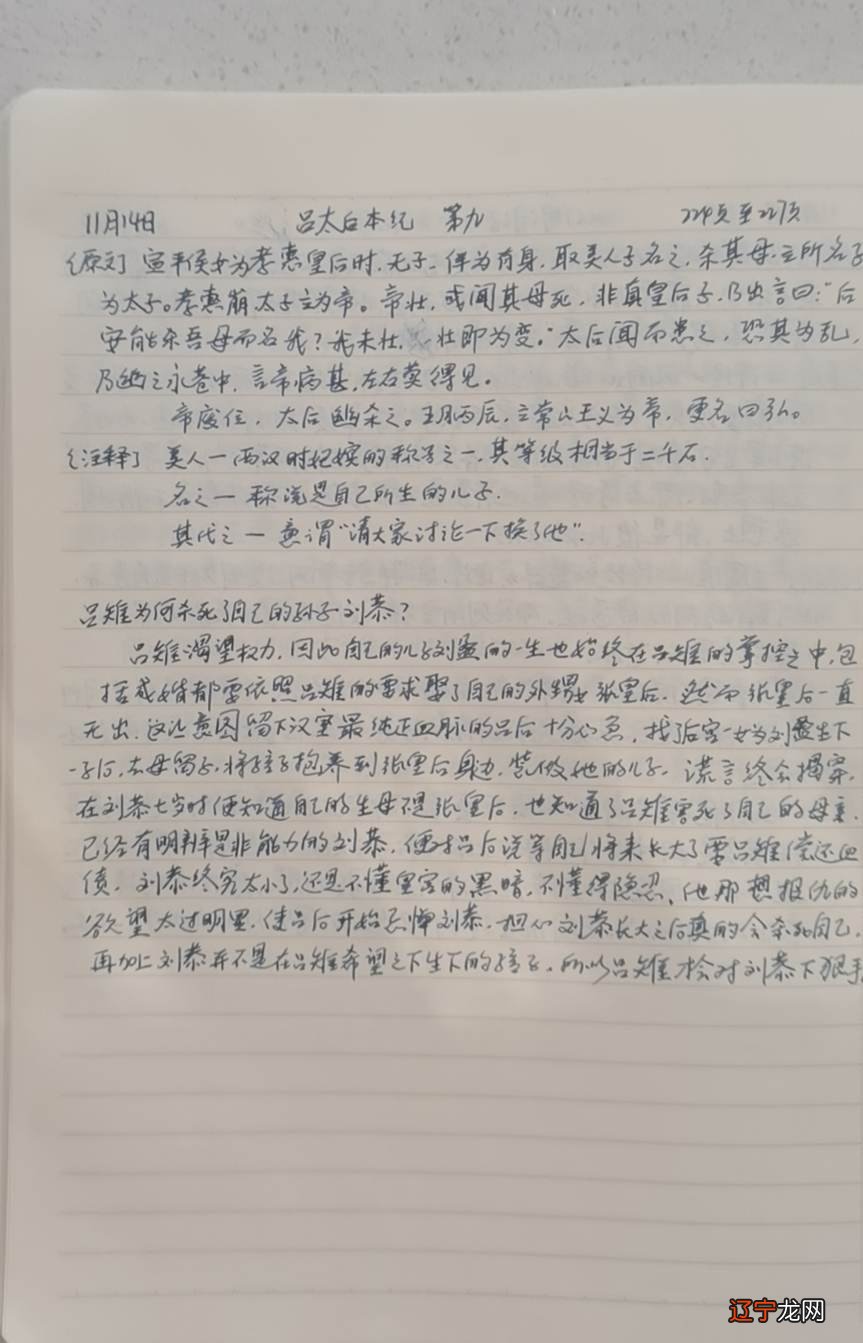 11月14日 吕太后本纪 第九 224页至227页
〔原文〕宣平侯女为孝惠皇后时,无子,佯为有身,取美人子名之,杀其母,立所名子
为太子。孝惠崩,太子立为帝。帝壮,或闻其母死,非真皇后子,乃出言曰:“后
安能杀吾母而名我?我未壮,壮即为变。”太后闻而患之,恐其为乱,
乃幽之永巷中,言帝病甚,左右莫得见。
帝废位,太后幽杀之。五月丙辰,立常山王义为帝,更名曰弘。
〔注释〕美人一两汉时妃嫔的称号之一,其等级相当于二千石.
名之一称说是自己所生的儿子.
其代之一意谓“请大家讨论一下换了他”.
吕雉为何杀死了自己的孙子刘恭?
吕雉渴望权力,因此自己的儿子刘盈的一生也始终在吕雉的掌控之中,包
括成婚都要依照吕雉的要求娶了自己的外甥女张皇后。然而张皇后一直
无出,这让意图留下汉室最纯正血脉的吕后十分心急,找了后宫一女为刘盈生下
一子后,去母留子,将孩子抱养到张皇后身边,装做她的儿子。谎言终会揭穿,
在刘恭七岁时便知道自己的生母不是张皇后,也知道了吕雉害死了自己的母亲.
已经有明辨是非能力的刘恭,便对吕后说等自己将来长大了要吕雉偿还血
债。刘恭终究太小了,还是不懂皇宫的黑暗,不懂得隐忍、他那想报仇的
欲望太过明显,使吕后开始忌惮刘恭,担心刘恭长大之后真的会杀死自己,
再加上刘恭并不是在吕雉希望之下生下的孩子,所以吕雉才会对刘恭下狠手
辽宁龙网